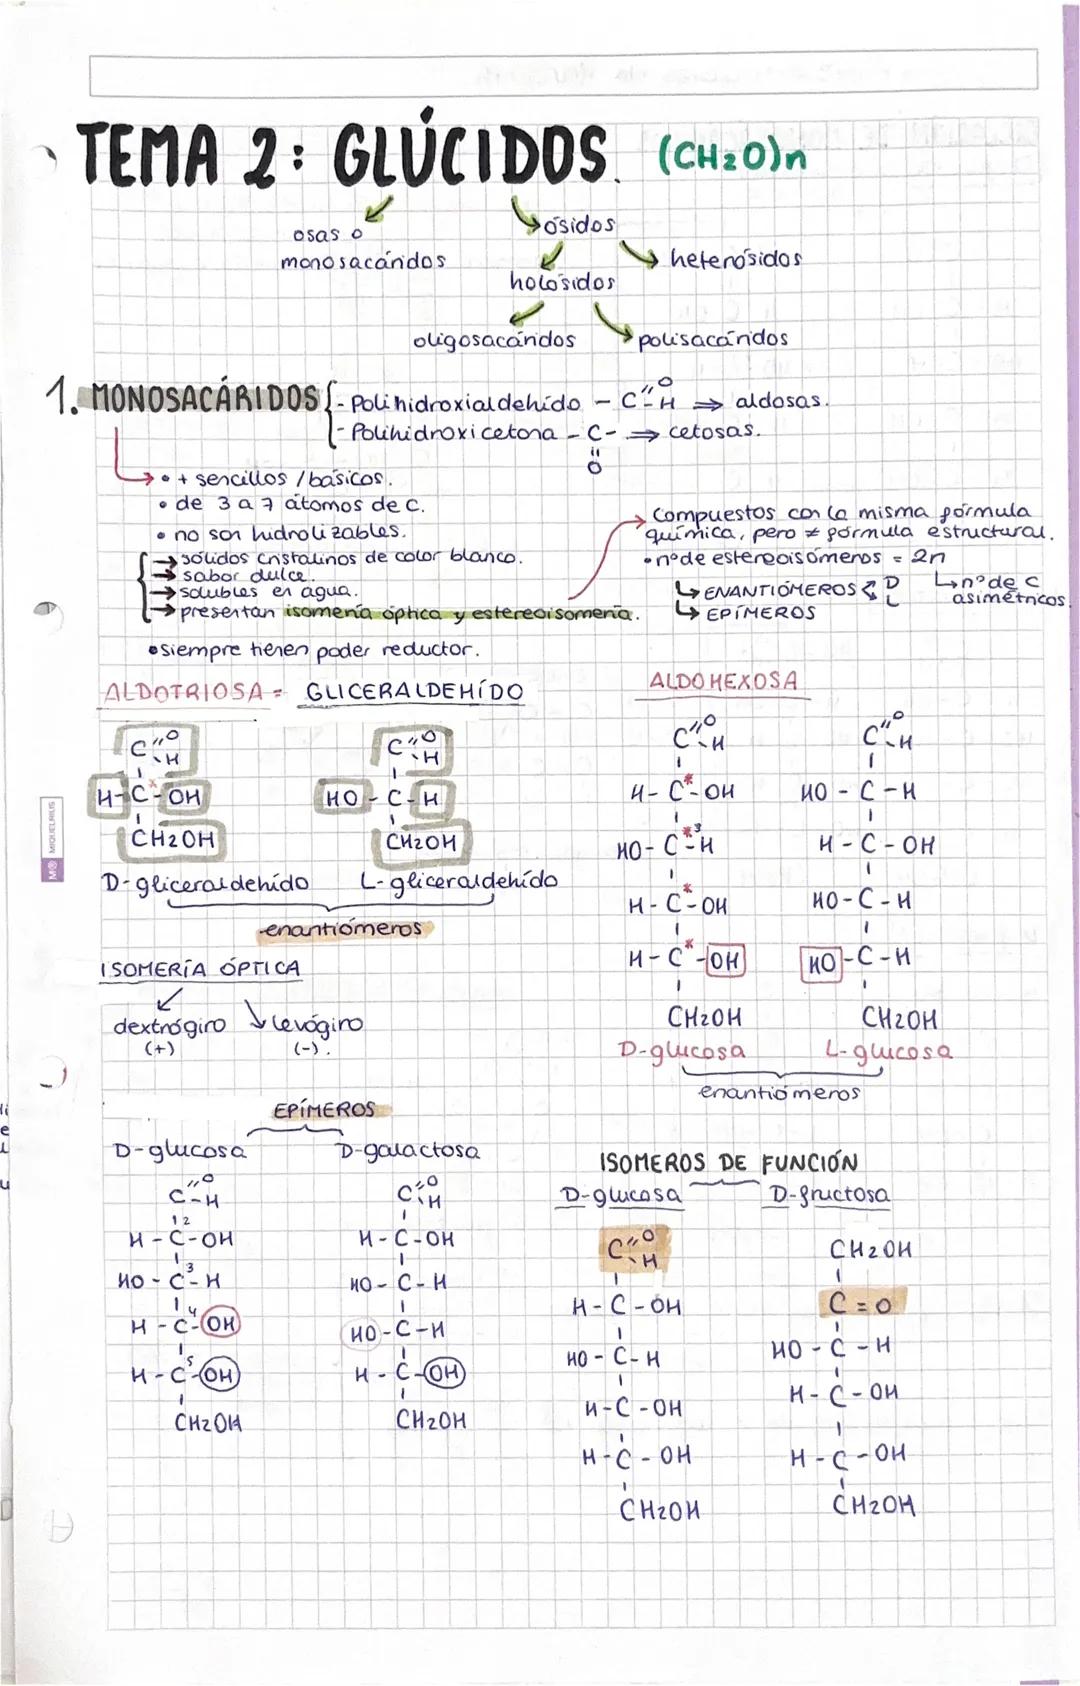 TEMA 2: GLÚCIDOS. (CH2O)n
osas o
monosacáridos
ósidos
holósidos
heterósidos
oligosacáridos
polisacáridos
1. MONOSACÁRIDOS
- Polihidroxialdehído - C=O -H ⇒ aldosas.
- Polihidroxicetona - C - ⇒ cetosas.
=
O
• + sencillos / básicos.
• de 3 a 7 átomos de c.
• no son hidrolizables.
→ sólidos cristalinos de color blanco.
→ sabor dulce.
→ solubles en agua.
→ presentan isomería óptica y estereoisomería.
• siempre tienen poder reductor.
Compuestos con la misma fórmula
química, pero ≠ fórmula estructural.
• nº de estereoisómeros = 2n
↳ nº de C
asimétricos.
↳ ENANTIÓMEROS D
L
↳ EPÍMEROS
ALDOTRIOSA = GLICERALDEHÍDO
C=O
-H
H-C*-OH
CH2OH
D-gliceraldehído
C=O
-H
HO-C-H
CH2OH
L-gliceraldehído
enantiómeros
ISOMERÍA ÓPTICA
dextrógiro
(+)
levógiro
(-).
ALDOHEXOSA
C=O
-H
H-C*-OH
HO-C*3-H
H-C*-OH
H-C*-OH
CH2OH
D-glucosa
C=O
-H
HO-C-H
H-C-OH
HO-C-H
HO-C-H
CH2OH
L-glucosa
enantiómeros
EPÍMEROS
D-glucosa
C=O
-H
12
H-C-OH
HO-C3-H
H-C4-OH
H-C5-OH
CH2OH
D-galactosa
C=O
-H
H-C-OH
HO-C-H
HO-C-H
H-C-OH
CH2OH
ISOMEROS DE FUNCIÓN
D-glucosa
C=O
-H
H-C-OH
HO-C-H
H-C-OH
H-C-OH
CH2OH
D-fructosa
CH2OH
C=O
HO-C-H
H-C-OH
H-C-OH
CH2OH
MIQUELRIUS